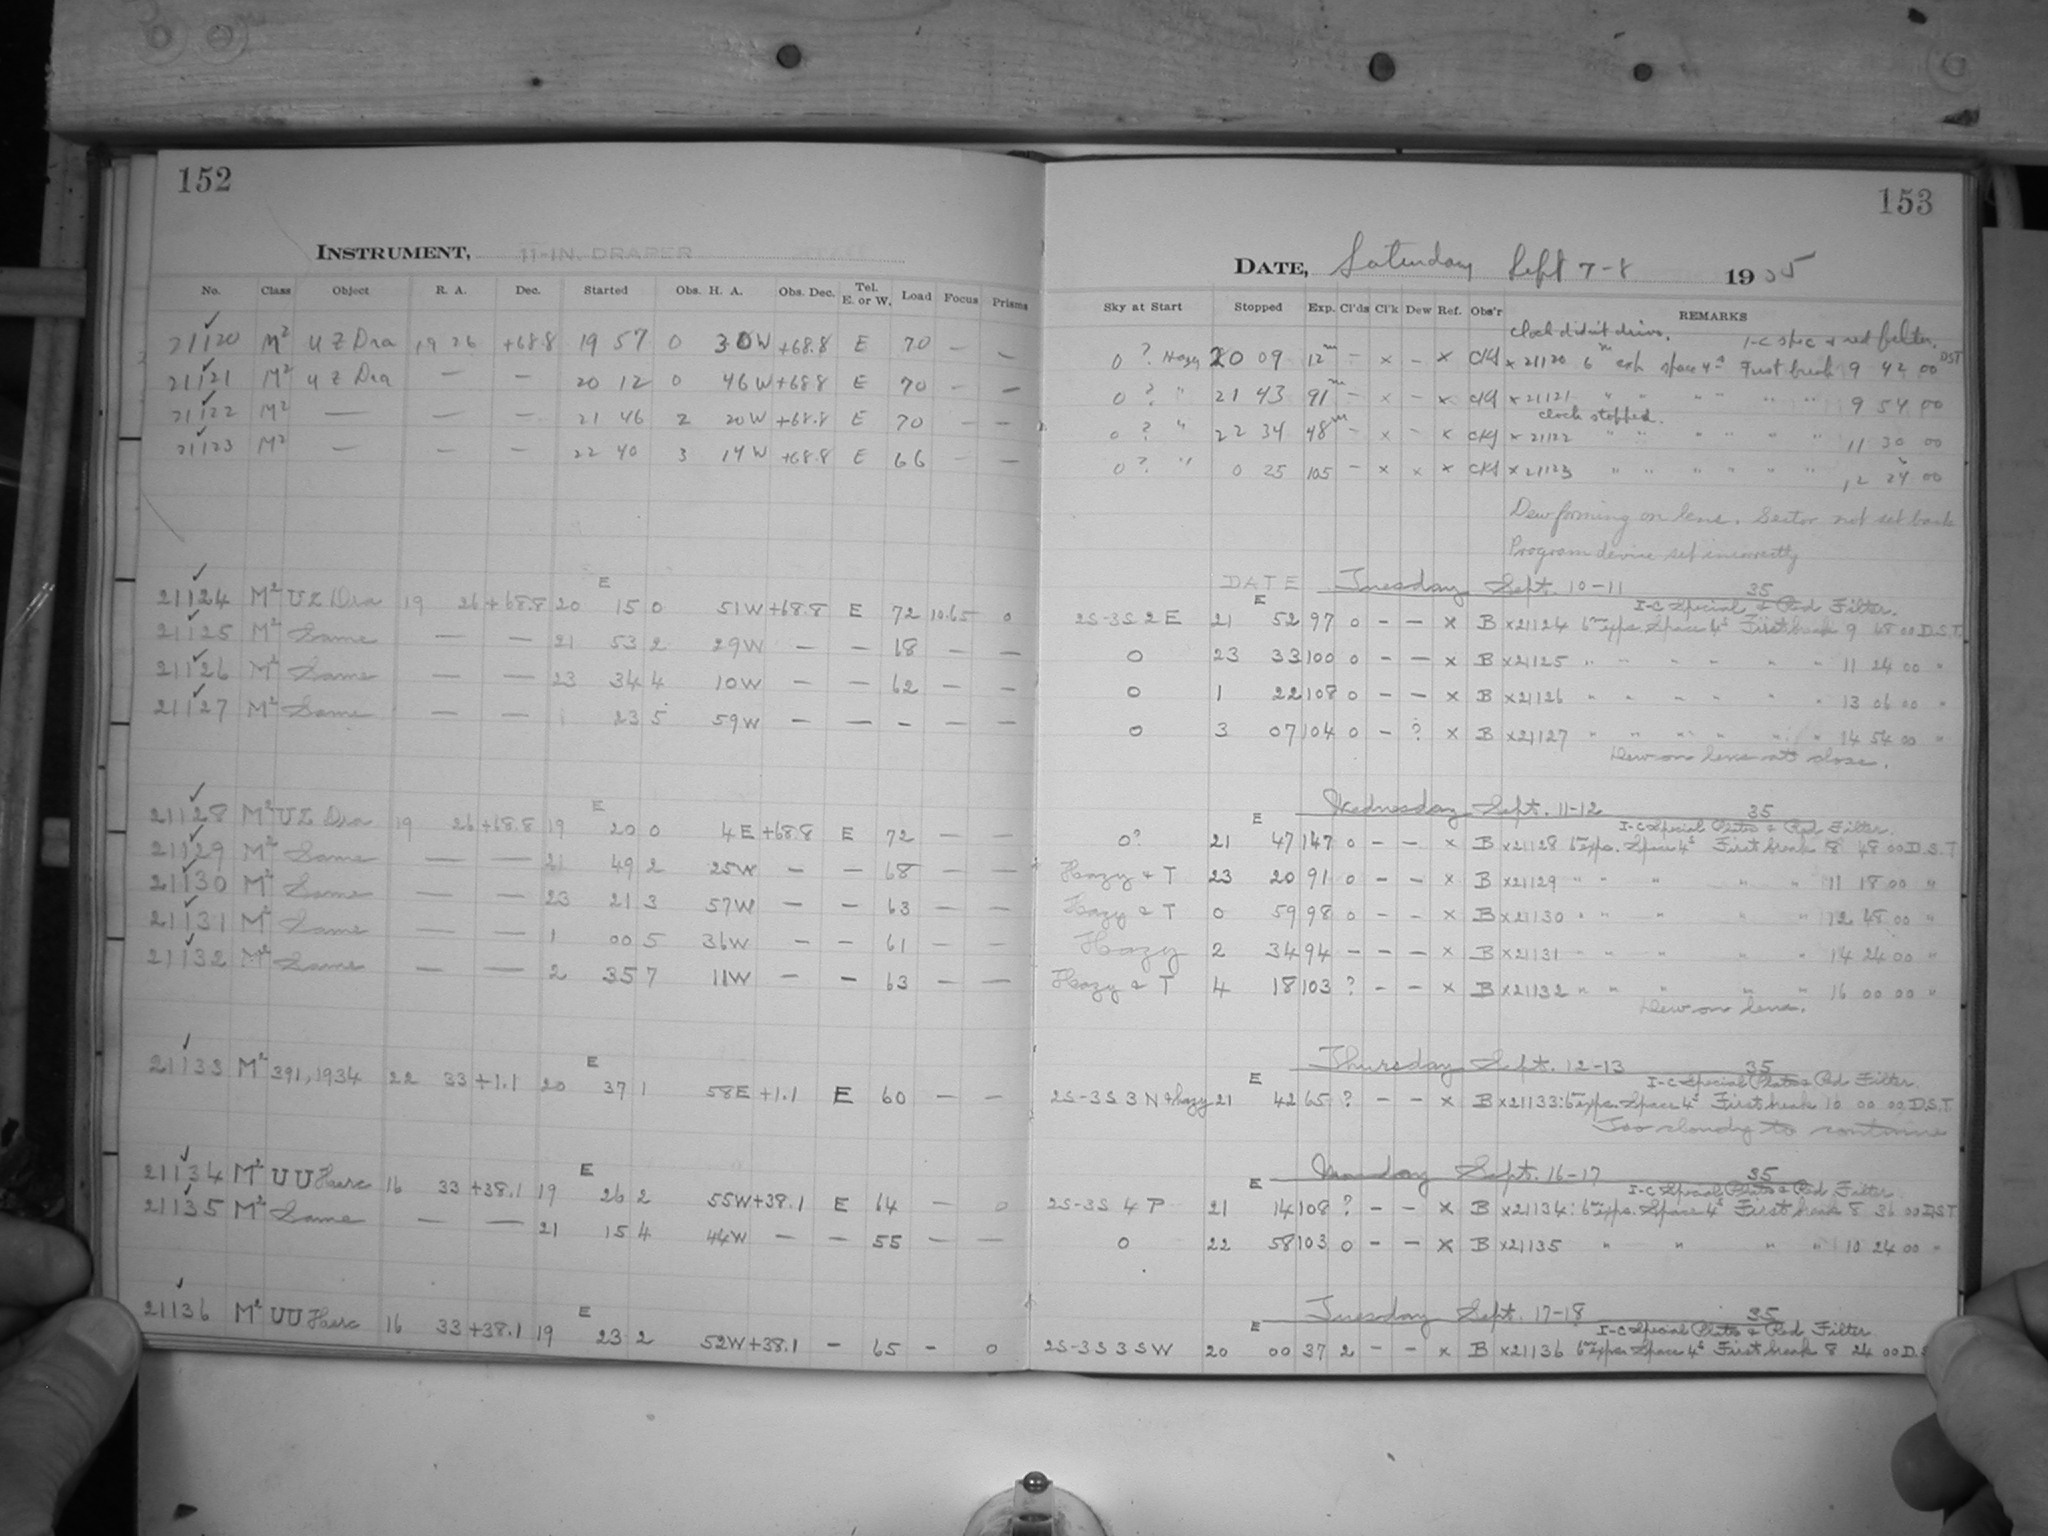 152
INSTRUMENT, 11-IN. DRAPER
No. Class Object R. A. Dec. Started Obs. H. A. Obs. Dec. Tel. E. or W. Load Focus Prisms
21120 M² UZ Dra 19 26 +68.8 19 57 0 30W +68.8 E 70 — —
21121 M² UZ Dra — — 20 12 0 46W +68.8 E 70 — —
21122 M² — 21 46 2 20W +68.8 E 70 — —
21123 M² — — — 22 40 3 14W +68.8 E 66 — —
E
21124 M² UZ Dra 19 26 +68.8 20 15 0 51W +68.8 E 72 10.65 0
21125 M² Same — — 21 53 2 29W — — 68 — —
21126 M² Same — — 23 34 4 10W — — 62 — —
21127 M² Same — — 1 23 5 59W — — — — —
E
21128 M² UZ Dra 19 26 +68.8 19 20 0 4E +68.8 E 72 — —
21129 M² Same — — 21 49 2 25W — — 68 — —
21130 M² Same — — 23 21 3 57W — — 63 — —
21131 M² Same — — 1 00 5 36W — — 61 — —
21132 M² Same — — 2 35 7 11W — — 63 — —
E
21133 M² 391,1934 22 33 +1.1 20 37 1 58E +1.1 E 60 — —
E
21134 M² UU Herc 16 33 +38.1 19 26 2 55W +38.1 E 64 — 0
21135 M² Same — — 21 15 4 44W — — 55 — —
E
21136 M² UU Herc 16 33 +38.1 19 23 2 52W +38.1 — 65 - 0
153
DATE, Saturday Sept 7-8 1935
Sky at Start Stopped Exp. Cl'ds Cl'k Dew Ref. Obs'r REMARKS
Clock didn't drive. I-C spec & red filter.
0 ? Hazy 20 09 12m — x — x CKJ x 21120 6m exp space 4s First break 9 42 00 DST
0 ? " 21 43 91m — x — x CKJ x 21121 " " " " " " 9 54 00
clock stopped.
0 ? " 22 34 48m — x — x CKJ x 21122 " " " " " " 11 30 00
0 ? " 0 25 105 — x x x CKJ x 21123 " " " " " " 12 24 00
Dew forming on lens. Sector not set back
Program device set incorrectly
DATE Tuesday Sept. 10-11 35
E I-C Special & Red Filter.
2S-3S 2 E 21 52 97 0 — — x B x21124 6m exps. Space 4s First break 9 48 00 D.S.T.
0 23 33 100 0 — — x B x21125 " " " " " " 11 24 00 "
0 1 22 108 0 — — x B x21126 " " " " " " 13 06 00 "
0 3 07 104 0 — ? x B x21127 " " " " " " 14 54 00 "
Dew on lens at close.
Wednesday Sept. 11-12 35
E I-C Special Plates & Red Filter.
0? 21 47 147 0 — — x B x21128 6m exps. Space 4s First break 8 48 00 D.S.T
Hazy & T 23 20 91 0 — — x B x21129 " " " " " 11 18 00 "
Hazy & T 0 59 98 0 — — x B x21130 " " " " " 12 48 00 "
Hazy 2 34 94 — — — x B x21131 " " " " " 14 24 00 "
Hazy & T 4 18 103 ? — — x B x21132 " " " " " 16 00 00 "
Dew on lens.
Thursday Sept. 12-13 35
E I-C Special Plates & Red Filter.
2S-3S 3 N & hazy 21 42 65 ? — — x B x21133: 6m exps. Space 4s First break 10 00 00 D.S.T
Too cloudy to continue
Monday Sept. 16-17 35
E I-C Special Plates & Red Filter
2S-3S 4 P 21 14 108 ? — — x B x21134: 6m exps. Space 4s First break 8 36 00 D.S.T
0 22 58 103 0 — — x B x21135 " " " " 10 24 00 "
Tuesday Sept. 17-18 35
E I-C Special Plates & Red Filter
2S-3S 3 SW 20 00 37 2 — — x B x21136 6m exps Space 4s First break 8 24 00 D.S